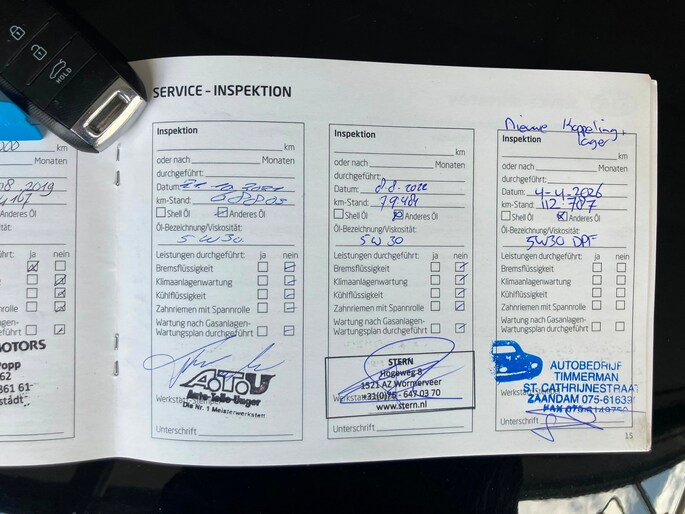 HOLD
SERVICE – INSPEKTION
000
km
Monaten
08 2019
4167
Anderes Öl
führt: ja nein
rolle
lagen-
führt
MOTORS
Popp
62
361 61-
städt
Inspektion
km
oder nach Monaten
durchgeführt:
Datum: 10 2021
km-Stand: 68809
Shell Öl Anderes Öl
Öl-Bezeichnung/Viskosität:
5W30
Leistungen durchgeführt: ja nein
Bremsflüssigkeit
Klimaanlagenwartung
Kühlflüssigkeit
Zahnriemen mit Spannrolle
Wartung nach Gasanlagen-
Wartungsplan durchgeführt
AUTO
Auto-Teile-Unger
Die Nr. 1 Meisterwerkstatt
Unterschrift
Inspektion
km
oder nach Monaten
durchgeführt:
Datum: 8.8.2022
km-Stand: 79481
Shell Öl Anderes Öl
Öl-Bezeichnung/Viskosität:
5W30
Leistungen durchgeführt: ja nein
Bremsflüssigkeit
Klimaanlagenwartung
Kühlflüssigkeit
Zahnriemen mit Spannrolle
Wartung nach Gasanlagen-
Wartungsplan durchgeführt
STERN
Hogeweg 8
1521 AZ Wormerveer
+31(0)75 - 647 03 70
www.stern.nl
Unterschrift
Nieuwe Koppeling,
lager
Inspektion
km
oder nach Monaten
durchgeführt:
Datum: 4-4-2026
km-Stand: 112.787
Shell Öl Anderes Öl
Öl-Bezeichnung/Viskosität:
5W30 DPF
Leistungen durchgeführt: ja nein
Bremsflüssigkeit
Klimaanlagenwartung
Kühlflüssigkeit
Zahnriemen mit Spannrolle
Wartung nach Gasanlagen-
Wartungsplan durchgeführt
AUTOBEDRIJF
TIMMERMAN
ST. CATHRIJNESTRAAT
ZAANDAM 075-61639
Unterschrift
15